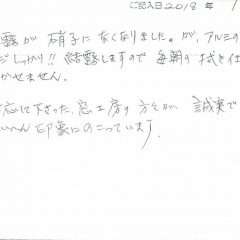 ご記入日 2018 年 1
露が 硝子に なくなりました。が、アルミの
だ しっかり!! 結露しますので 毎朝の 拭き仕
かせません。
応に下さった、窓工房の 方々が 誠実で
いへん 印象にのこっています。